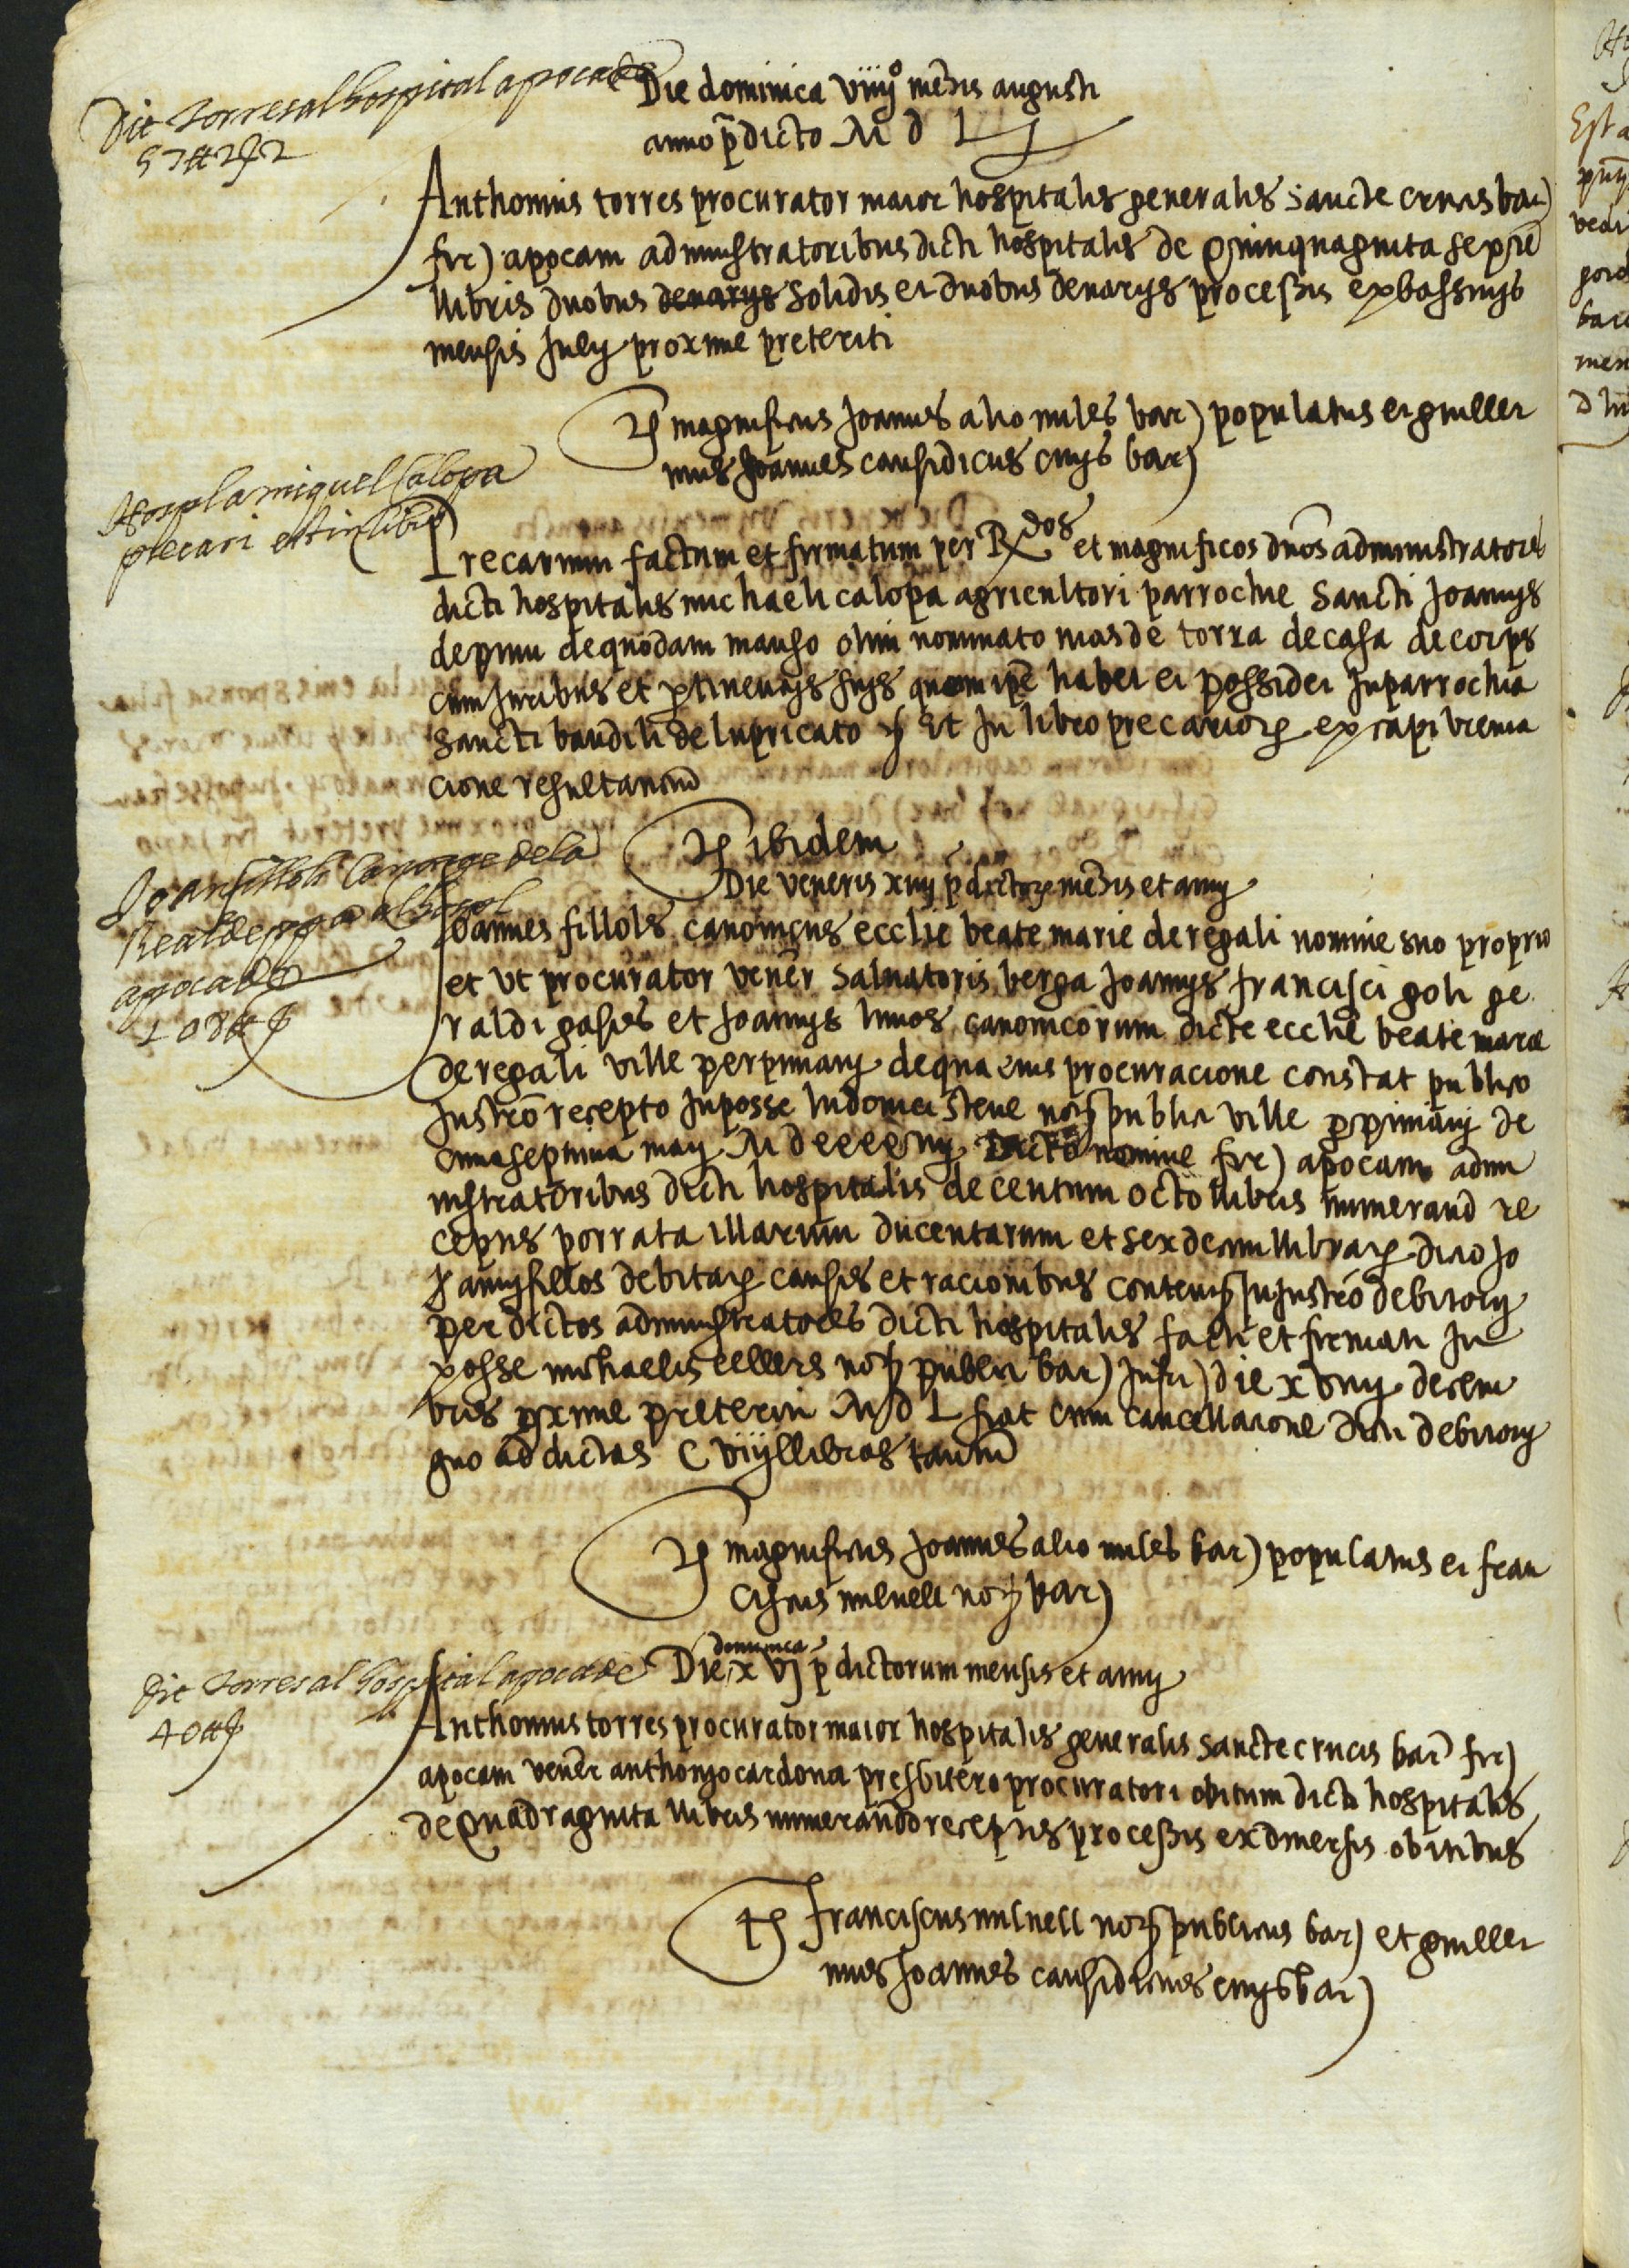 Dit torres al hospital apoca de
57 ₶ 2 ẜ 2
Die dominica viiijº mensis augusti
anno pͣdicto M d L j
Anthonius torres procurator maior hospitalis generalis sancte crucis bar)
fir) apocam administratoribus dicti hospitalis de quinquaginta septem
llibris duobus denarys solidis et duobus denarys processis ex bassinys
mensis July proxime preteriti
Ts magnificus Joannes alio miles bar) populatus et guiller
mus Joannes causidicus civis bar)
Hospl a miquel Calopa
precari est in libro
Precarium factum et firmatum per Rdos et magnificos dnos administratores
dicti hospitalis michaeli calopa agricultori parrochie Sancti Joannys
de pinu de quodam manso olim nominato mas de torra de casa de corps
cum Juribus et ptinencys suys quem ipe habet et possidet In parrochia
Sancti baudili de lupricato Et In libro precarior ex capibrevia
cione resultancium
Ts ibidem
Die veneris xiiij pͣdictor mensis et anny
Joan fillols Canonge dela
Real de ppa al hospl
apoca de
108 ₶ ẜ
Joannes fillols canonicus ecclie beate marie de regali nomine suo proprio
et ut procurator vener Salvatoris berga Joannys francisci goli ge
raldi gasies et Joannys canonicorum dicte ecclie beate marie
de regali ville perpiniany de qua eius procuracione constat publico
Instro recepto In posse ludovici steve nots publici ville ppiniany de
cima septima may M dicto nomine fir) apocam admi
nistratoribus dicti hospitalis de centum octo llibris numerand re
ceptis porrata illarum ducentarum et sexdecim llibrar dicto Jo
annyfillos debitar causis et racionibus contentis In Instro debitory
per dictos administratores dicti hospitalis facti et firmati In
posse michaelis cellers nots publici bar) Infri) die xviiij decem
bris pxime preteriti M d L fiat cum cancellacione dicti debitory
quo ad dictas C viij llibras tantum
Ts magnificus Joannes alio miles bar) populatus et fran
ciscus mulnell nots bar)
Dit torres al hospital apoca de
40 ₶ ẜ
dominica
Die xvj pͣdictorum mensis et anny
Anthonius torres procurator maior hospitalis generalis Sancte crucis bar fir)
apocam vener anthonyo cardona presbitero procuratori obitum dicti hospitalis
de Quadraginta llibris numerando receptis processis ex diversis obitibus
Ts franciscus mulnell nots publicus bar) et guiller
mus Joannes causidicus civis bar)